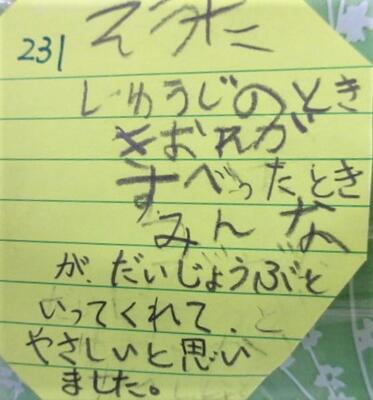 231
そうた
しゅうじのとき
きおれが
すべったとき
みんな
が、だいじょうぶと
いってくれて、と
やさしいと思い
ました。